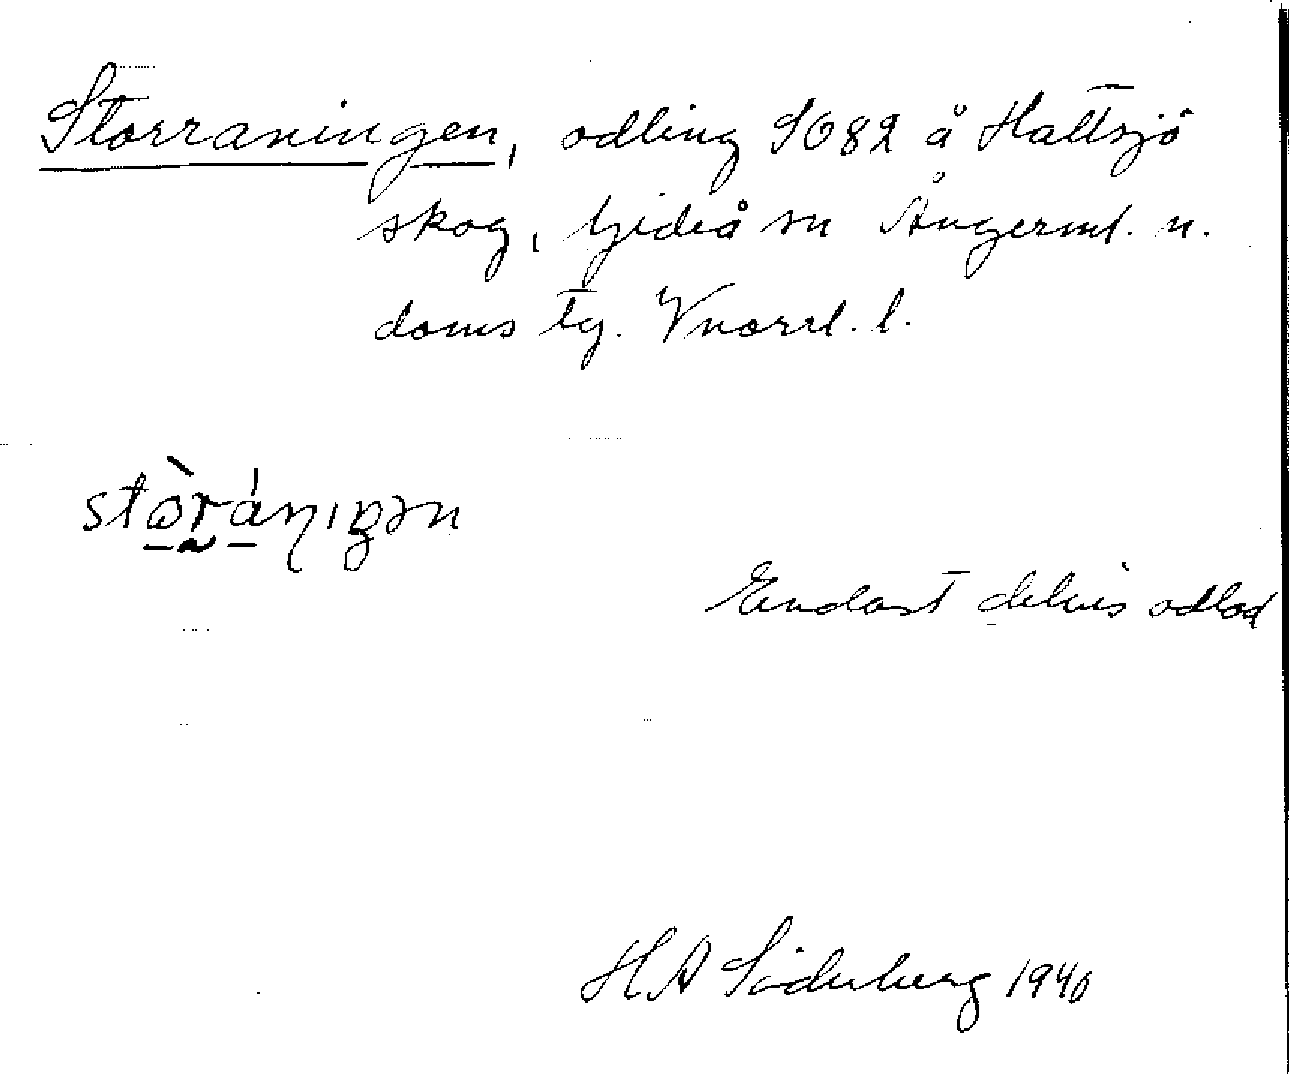 Storraningen, odling SO82 å Hattsjö
skog, Gideå sn Ångerml. n.
doms tg. Vnorrl. l.
stòr̥ániŋən
Endast delvis odlad
H A Söderberg 1940